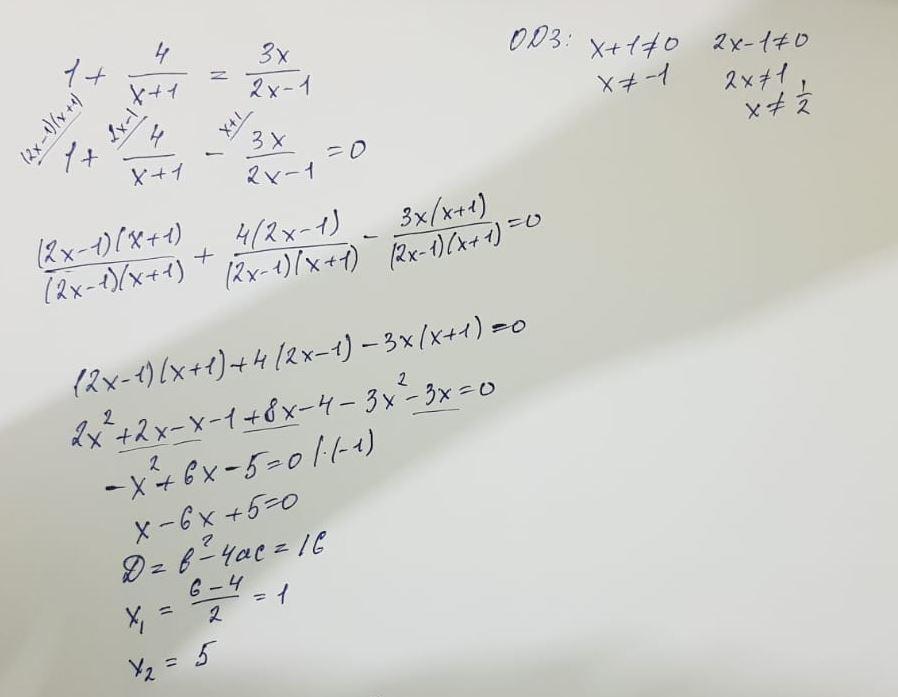 1 + 4/(x+1) = 3x/(2x-1)
ОДЗ: x+1≠0 2x-1≠0
x≠-1 2x≠1
x≠1/2
(2x-1)(x+1)/ 1 + 2x-1/ 4/(x+1) - x+1/ 3x/(2x-1) = 0
(2x-1)(x+1)/(2x-1)(x+1) + 4(2x-1)/(2x-1)(x+1) - 3x(x+1)/(2x-1)(x+1) = 0
(2x-1)(x+1)+4(2x-1)-3x(x+1)=0
2x²+2x-x-1+8x-4-3x²-3x=0
-x²+6x-5=0 |·(-1)
x-6x+5=0
D=b²-4ac=16
x₁ = (6-4)/2 = 1
x₂ = 5